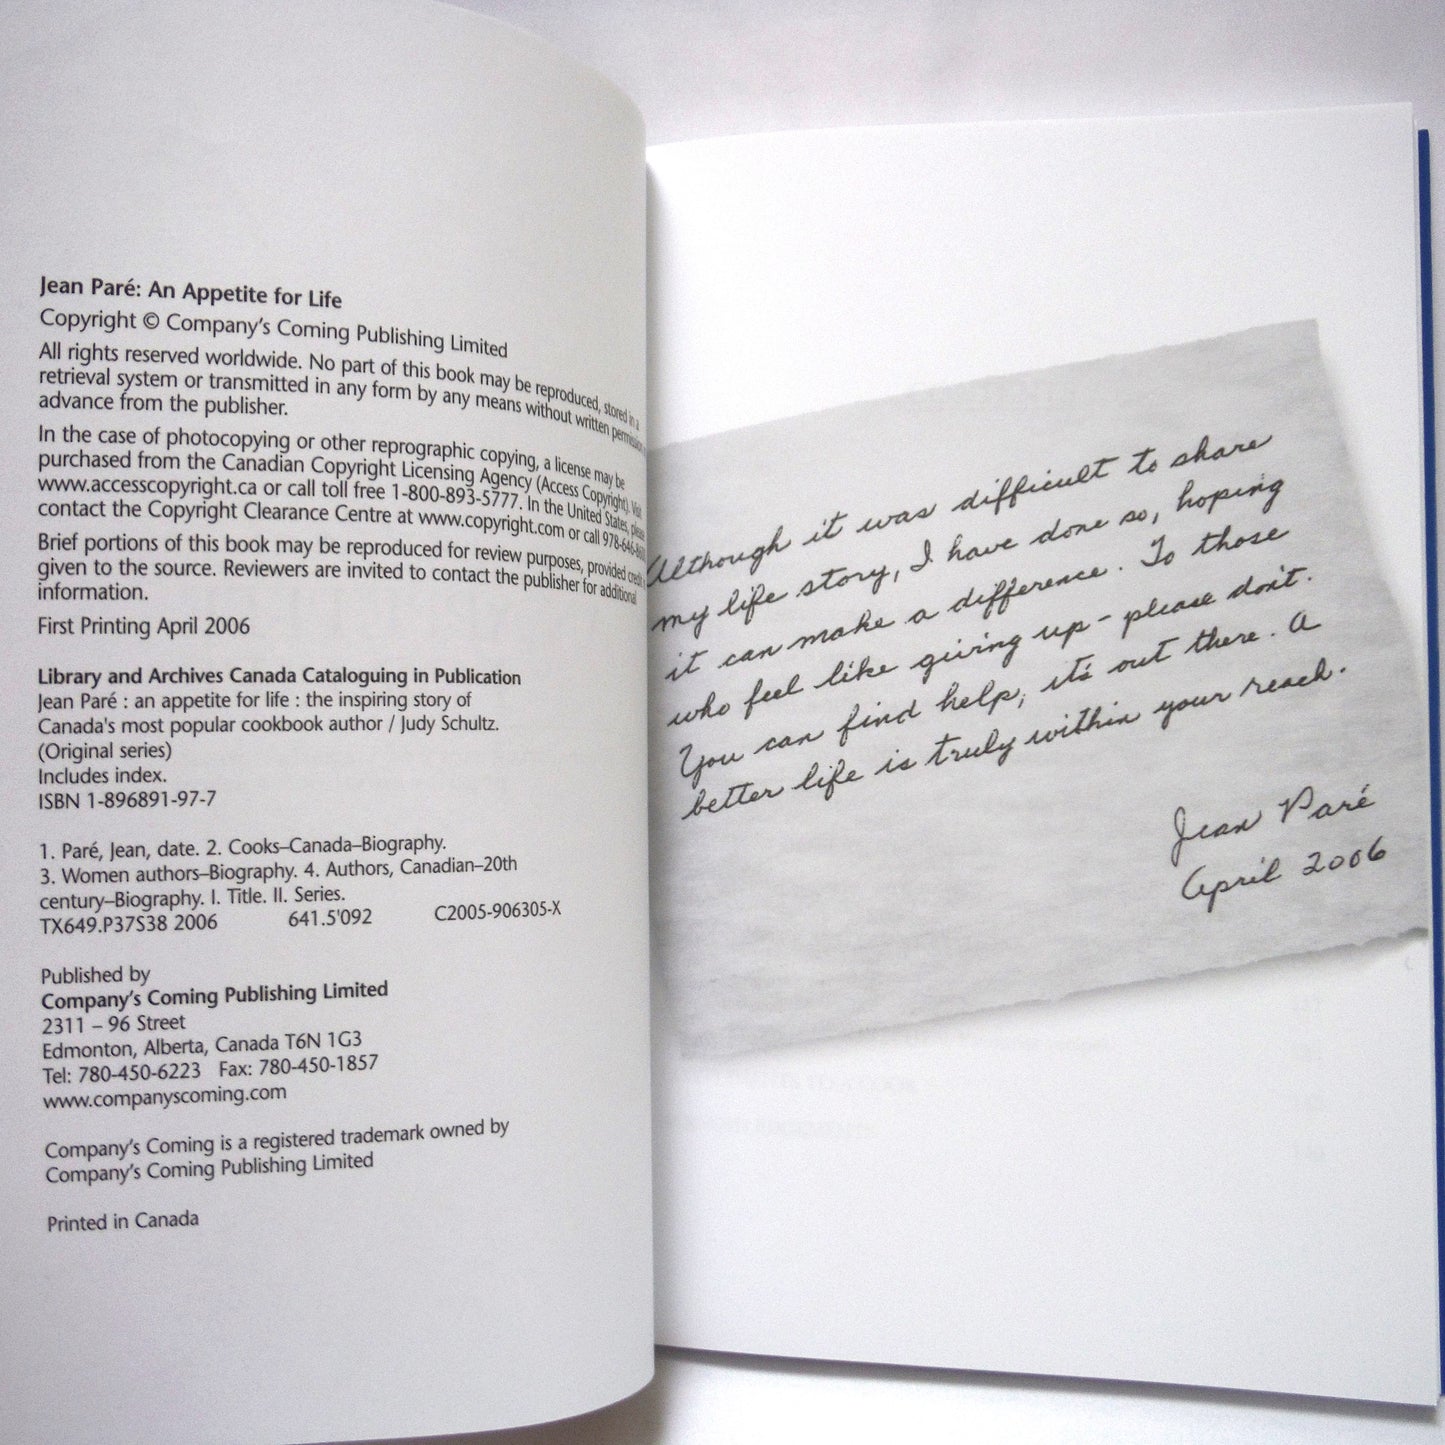 Jean Paré: An Appetite for Life
Copyright © Company's Coming Publishing Limited
All rights reserved worldwide. No part of this book may be reproduced, stored in a
retrieval system or transmitted in any form by any means without written permission
advance from the publisher.
In the case of photocopying or other reprographic copying, a license may be
purchased from the Canadian Copyright Licensing Agency (Access Copyright). Visit
www.accesscopyright.ca or call toll free 1-800-893-5777. In the United States, please
contact the Copyright Clearance Centre at www.copyright.com or call
Brief portions of this book may be reproduced for review purposes, provided credit
given to the source. Reviewers are invited to contact the publisher for additional
information.
First Printing April 2006
Library and Archives Canada Cataloguing in Publication
Jean Paré : an appetite for life : the inspiring story of
Canada's most popular cookbook author / Judy Schultz.
(Original series)
Includes index.
ISBN 1-896891-97-7
1. Paré, Jean, date. 2. Cooks–Canada–Biography.
3. Women authors–Biography. 4. Authors, Canadian–20th
century–Biography. I. Title. II. Series.
TX649.P37S38 2006 641.5'092 C2005-906305-X
Published by
Company's Coming Publishing Limited
2311 – 96 Street
Edmonton, Alberta, Canada T6N 1G3
Tel: 780-450-6223 Fax: 780-450-1857
www.companyscoming.com
Company's Coming is a registered trademark owned by
Company's Coming Publishing Limited
Printed in Canada
Although it was difficult to share
my life story, I have done so, hoping
it can make a difference. To those
who feel like giving up - please don't.
You can find help, it's out there. A
better life is truly within your reach.
Jean Paré
April 2006